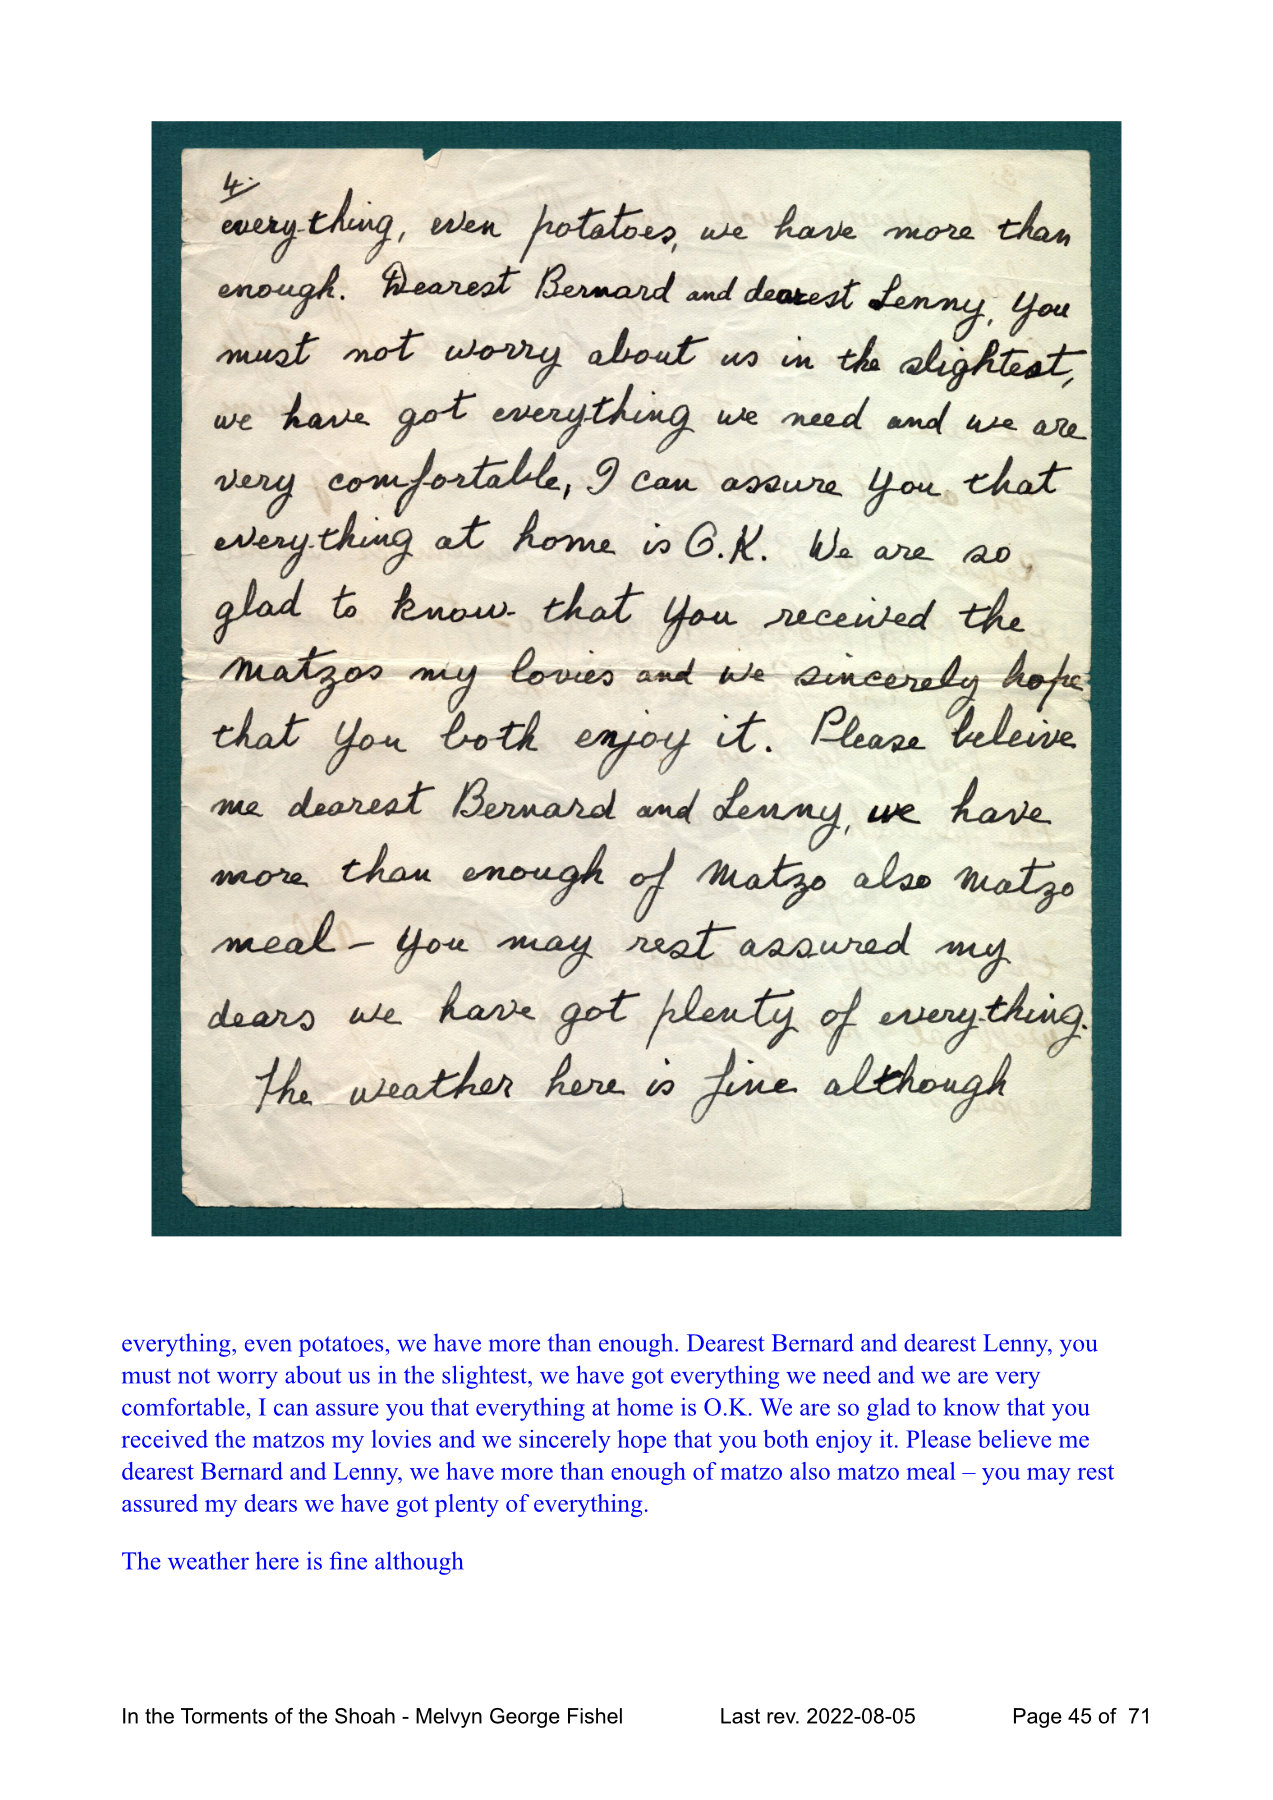 4.
every-thing, even potatoes, we have more than
enough. Dearest Bernard and dearest Lenny, you
must not worry about us in the slightest,
we have got every-thing we need and we are
very comfortable, I can assure you that
every-thing at home is O.K. We are so
glad to know that you received the
matzos my lovies and we sincerely hope
that you both enjoy it. Please beleive
me dearest Bernard and Lenny, we have
more than enough of matzo also matzo
meal – you may rest assured my
dears we have got plenty of every-thing.
The weather here is fine although
everything, even potatoes, we have more than enough. Dearest Bernard and dearest Lenny, you
must not worry about us in the slightest, we have got everything we need and we are very
comfortable, I can assure you that everything at home is O.K. We are so glad to know that you
received the matzos my lovies and we sincerely hope that you both enjoy it. Please believe me
dearest Bernard and Lenny, we have more than enough of matzo also matzo meal – you may rest
assured my dears we have got plenty of everything.
The weather here is fine although
In the Torments of the Shoah - Melvyn George Fishel Last rev. 2022-08-05 Page 45 of 71